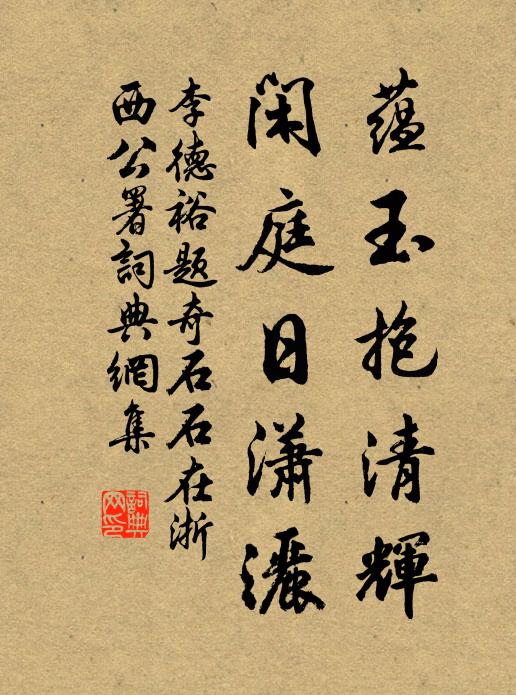 蘊玉抱清輝
閑庭日瀟灑
李德裕題奇石石在浙
西公署詞典網集
詞典網印